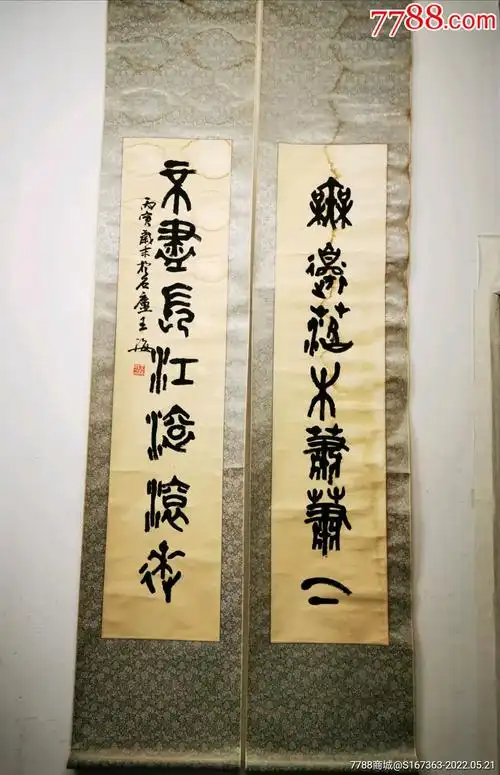 7788.com
無邊落木蕭蕭下
不盡長江滾滾來
丙寅歲末於石廬王海
7788商城@S167363-2022.05.21